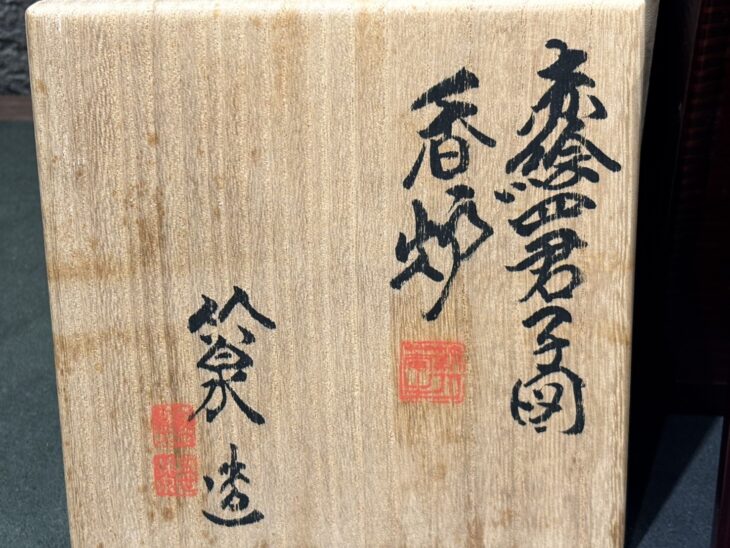 赤絵四君子図
香炉
造